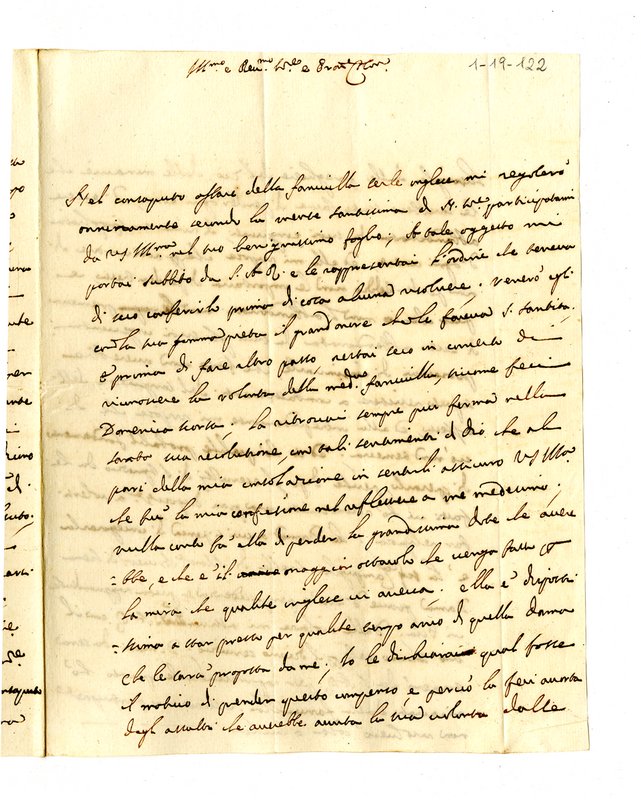 Ill.mo e Rev.mo Sre e Pron Col.mo
1-19-122
Nel consaputo affare della fanciulla inglese mi regolerò
onninamente secondo la mente santissima di N. Sre participatami
da VS Illma nel suo benignissimo foglio, A tale oggetto mi
portai subbito da S. A. R. e le rappresentai l'ordine che teneva
di seco conferirlo prima di cosa alcuna risolvere. Venerò egli
con la sua somma pietà il grand'onore che le faceva S. Santità.
E prima di fare altro passo, restai seco in concerto di
riconoscere la volontà della medma fanciulla, sicome feci
Domenica scorsa. La ritrovai sempre più ferma nella
sua risoluzione, con tali sentimenti di Dio che al
pari della mia consolazione in sentirli assicuro VS Illma
che fu la mia confusione nel riflettere a me medesimo.
nulla conto fa ella di perder la grandissima dote che avere
=bbe, e che è il maggior ostacolo che venga fatto
la mira che qualche inglese vi aveva; ella è dispostis
=sima a star presso per qualche tempo anco di quella dama
che le sarà proposta da me; Io le dichiarai qual fosse
il motivo di prender questo compenso, e perciò la feci avvertita
degl'assalti che avrebbe avuta la sua volontà dalle